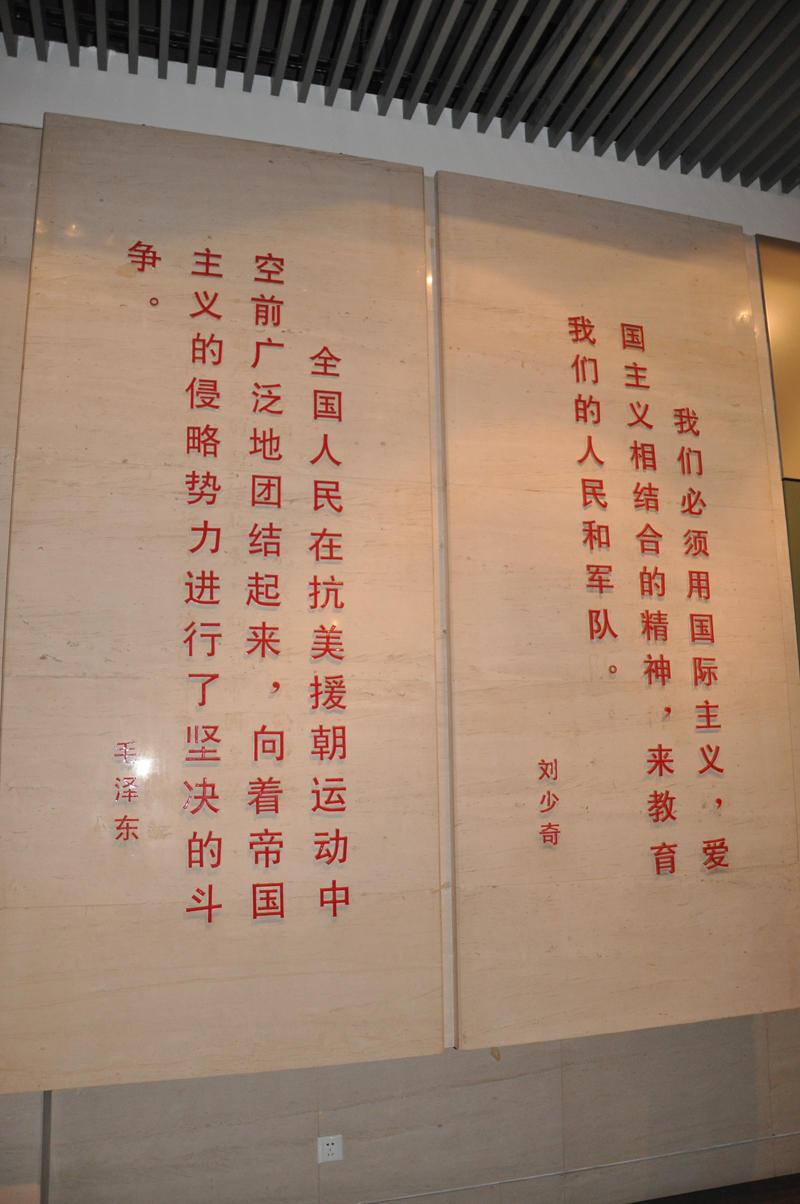 我们必须用国际主义，爱
国主义相结合的精神，来教育
我们的人民和军队。
刘少奇
全国人民在抗美援朝运动中
空前广泛地团结起来，向着帝国
主义的侵略势力进行了坚决的斗
争。
毛泽东